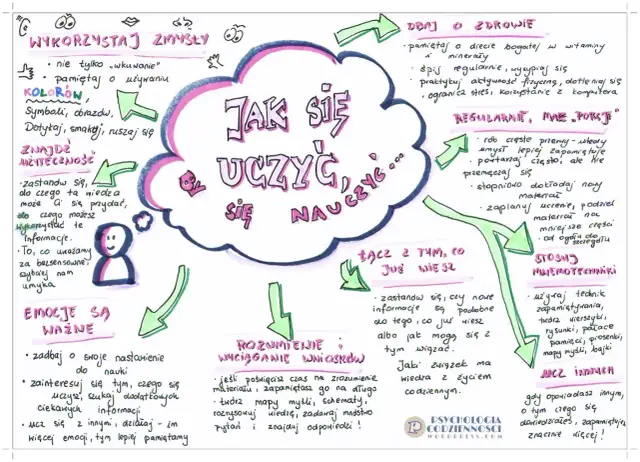 WYKORZYSTAJ ZMYSŁY
• nie tylko „wkuwanie"
• pamiętaj o używaniu
KOLORÓW,
symboli, obrazów.
Dotykaj, smakuj, ruszaj się
ZNAJDŹ
UŻYTECZNOŚĆ
• zastanów się,
do czego ta wiedza
może Ci się przydać,
do czego możesz
wykorzystać te
informacje.
• To, co uważamy
za bezsensowne,
szybciej nam
umyka
EMOCJE SĄ
WAŻNE
• zadbaj o swoje nastawienie
do nauki
• zainteresuj się tym, czego się
uczysz, szukaj dodatkowych
ciekawych informacji
• ucz się z innymi, działaj – im
więcej emocji, tym lepiej pamiętamy
JAK SIĘ
UCZYĆ,
BY SIĘ NAUCZYĆ...
ROZUMIENIE I
WYCIĄGANIE WNIOSKÓW
• jeśli poświęcisz czas na zrozumienie
materiału, zapamiętasz go na długo
• twórz mapy myśli, schematy,
rozrysowuj wiedzę, zadawaj mnóstwo
pytań i znajduj odpowiedzi!
ŁĄCZ Z TYM, CO
JUŻ WIESZ
• zastanów się, czy nowe
informacje są podobne
do tego, co już wiesz
albo jak mogą się z
tym wiązać.
Jaki związek ma
wiedza z życiem
codziennym.
DBAJ O ZDROWIE
• pamiętaj o diecie bogatej w witaminy
i minerały
• śpij regularnie, wysypiaj się
• praktykuj aktywność fizyczną, dotleniaj się
• ogranicz stres i korzystanie z komputera
REGULARNIE, MAŁE „PORCJE"
• rób częste przerwy – wtedy
umysł lepiej zapamiętuje
• powtarzaj często, ale nie
przemęczaj się
• stopniowo dokładaj nowy
materiał
• zaplanuj uczenie, podziel
materiał na
mniejsze części
• od ogółu do
szczegółu
STOSUJ
MNEMOTECHNIKI
• używaj technik
zapamiętywania,
twórz wierszyki,
rysunki, pałace
pamięci, piosenki,
mapy myśli, bajki
UCZ INNYCH
gdy opowiadasz innym,
o tym czego się
dowiedziałeś, zapamiętujesz
znacznie więcej!
PSYCHOLOGIA
CODZIENNOŚCI
WORDPRESS.COM